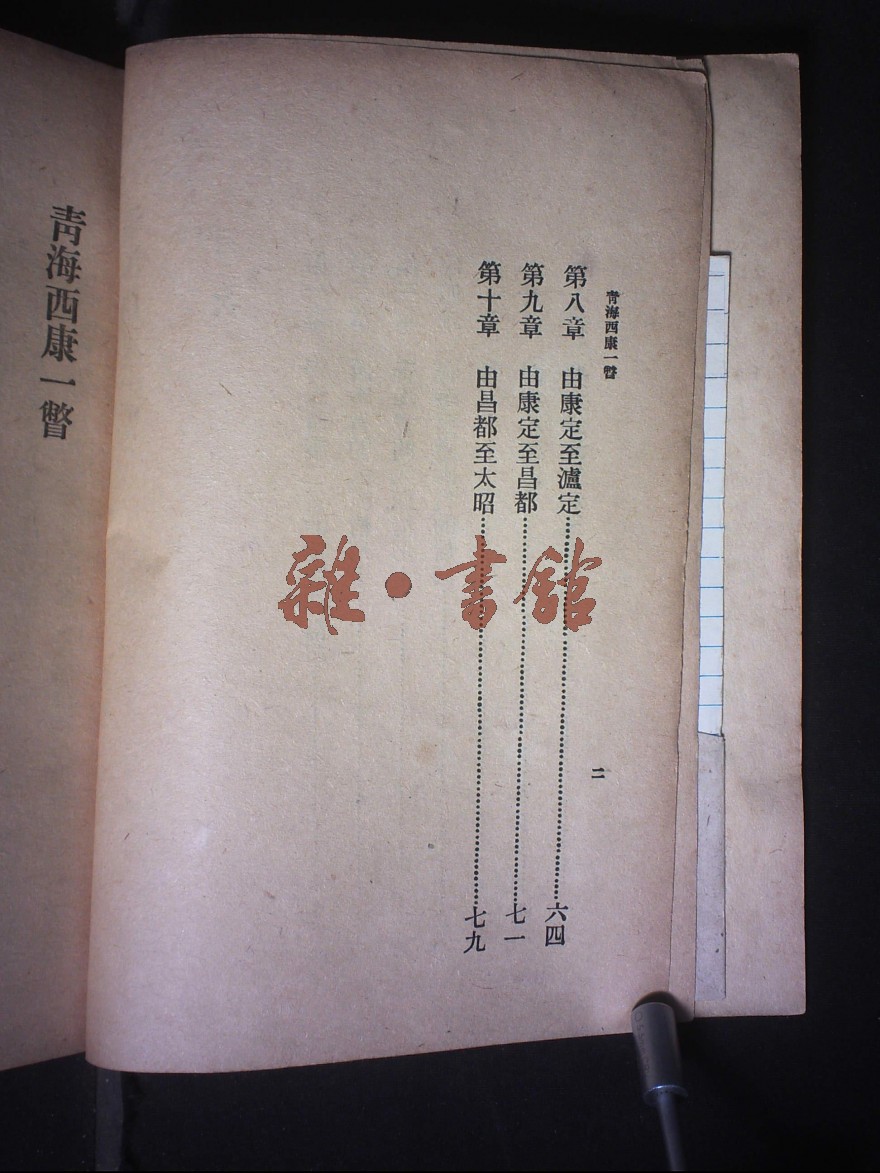 青海西康一瞥
二
第八章　由康定至瀘定……六四
第九章　由康定至昌都……七一
第十章　由昌都至太昭……七九
青海西康一瞥
雜·書館